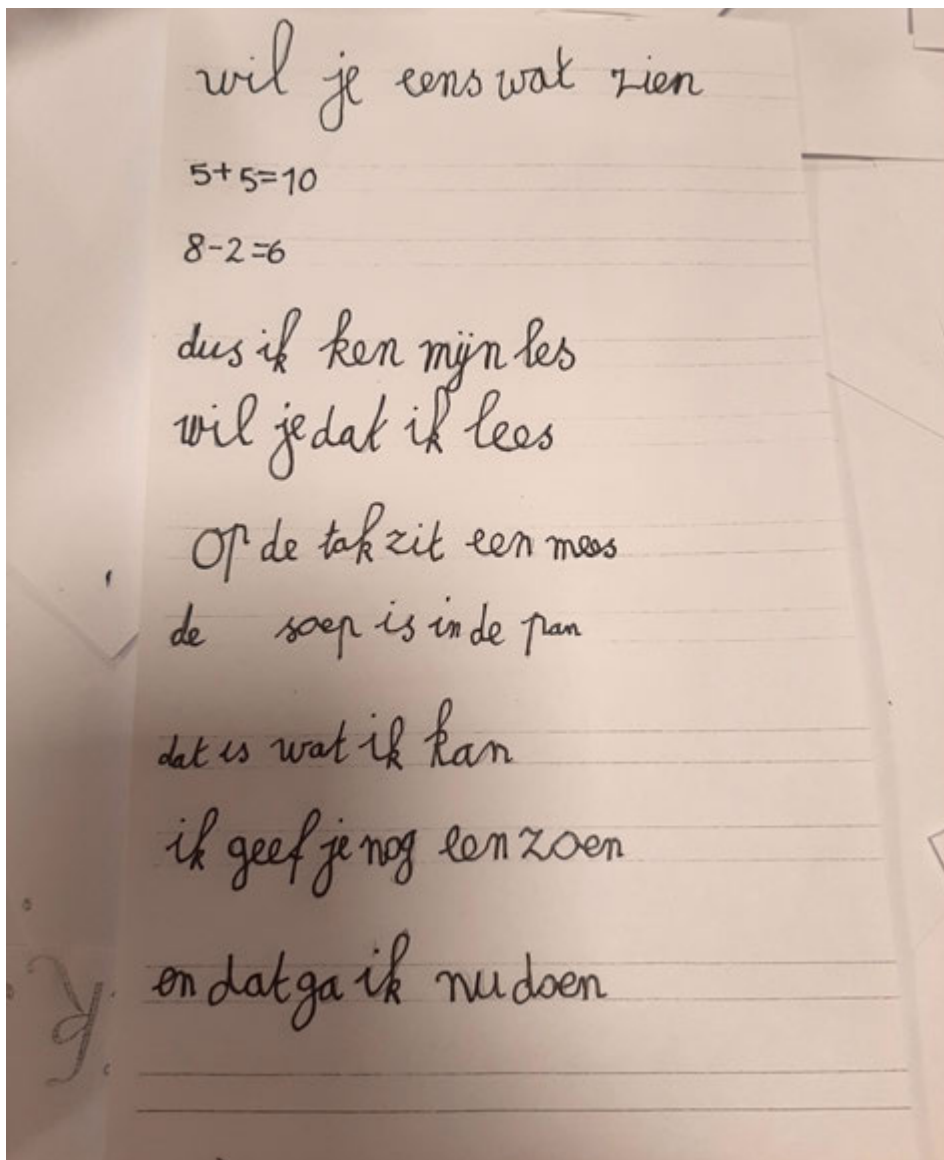 wil je eens wat zien
5+5=10
8-2=6
dus ik ken mijn les
wil je dat ik lees
op de tak zit een mees
de soep is in de pan
dat is wat ik kan
ik geef je nog een zoen
en dat ga ik nu doen